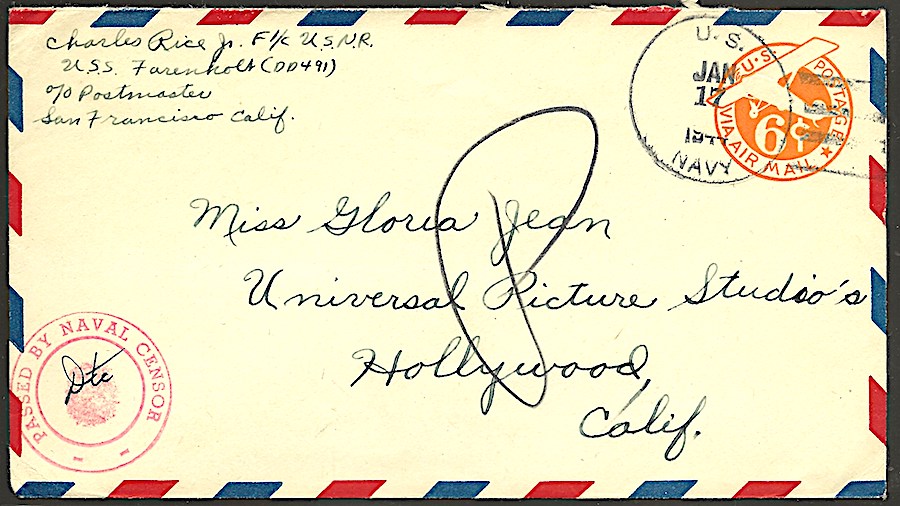 Charles Rice Jr. F1/c U.S.N.R.
U.S.S. Farenholt (DD491)
c/o Postmaster
San Francisco Calif.
U.S.
JAN
17
NAVY
U.S. POSTAGE
6¢
VIA AIR MAIL
Miss Gloria Jean
Universal Picture Studio's
Hollywood,
Calif.
PASSED BY NAVAL CENSOR